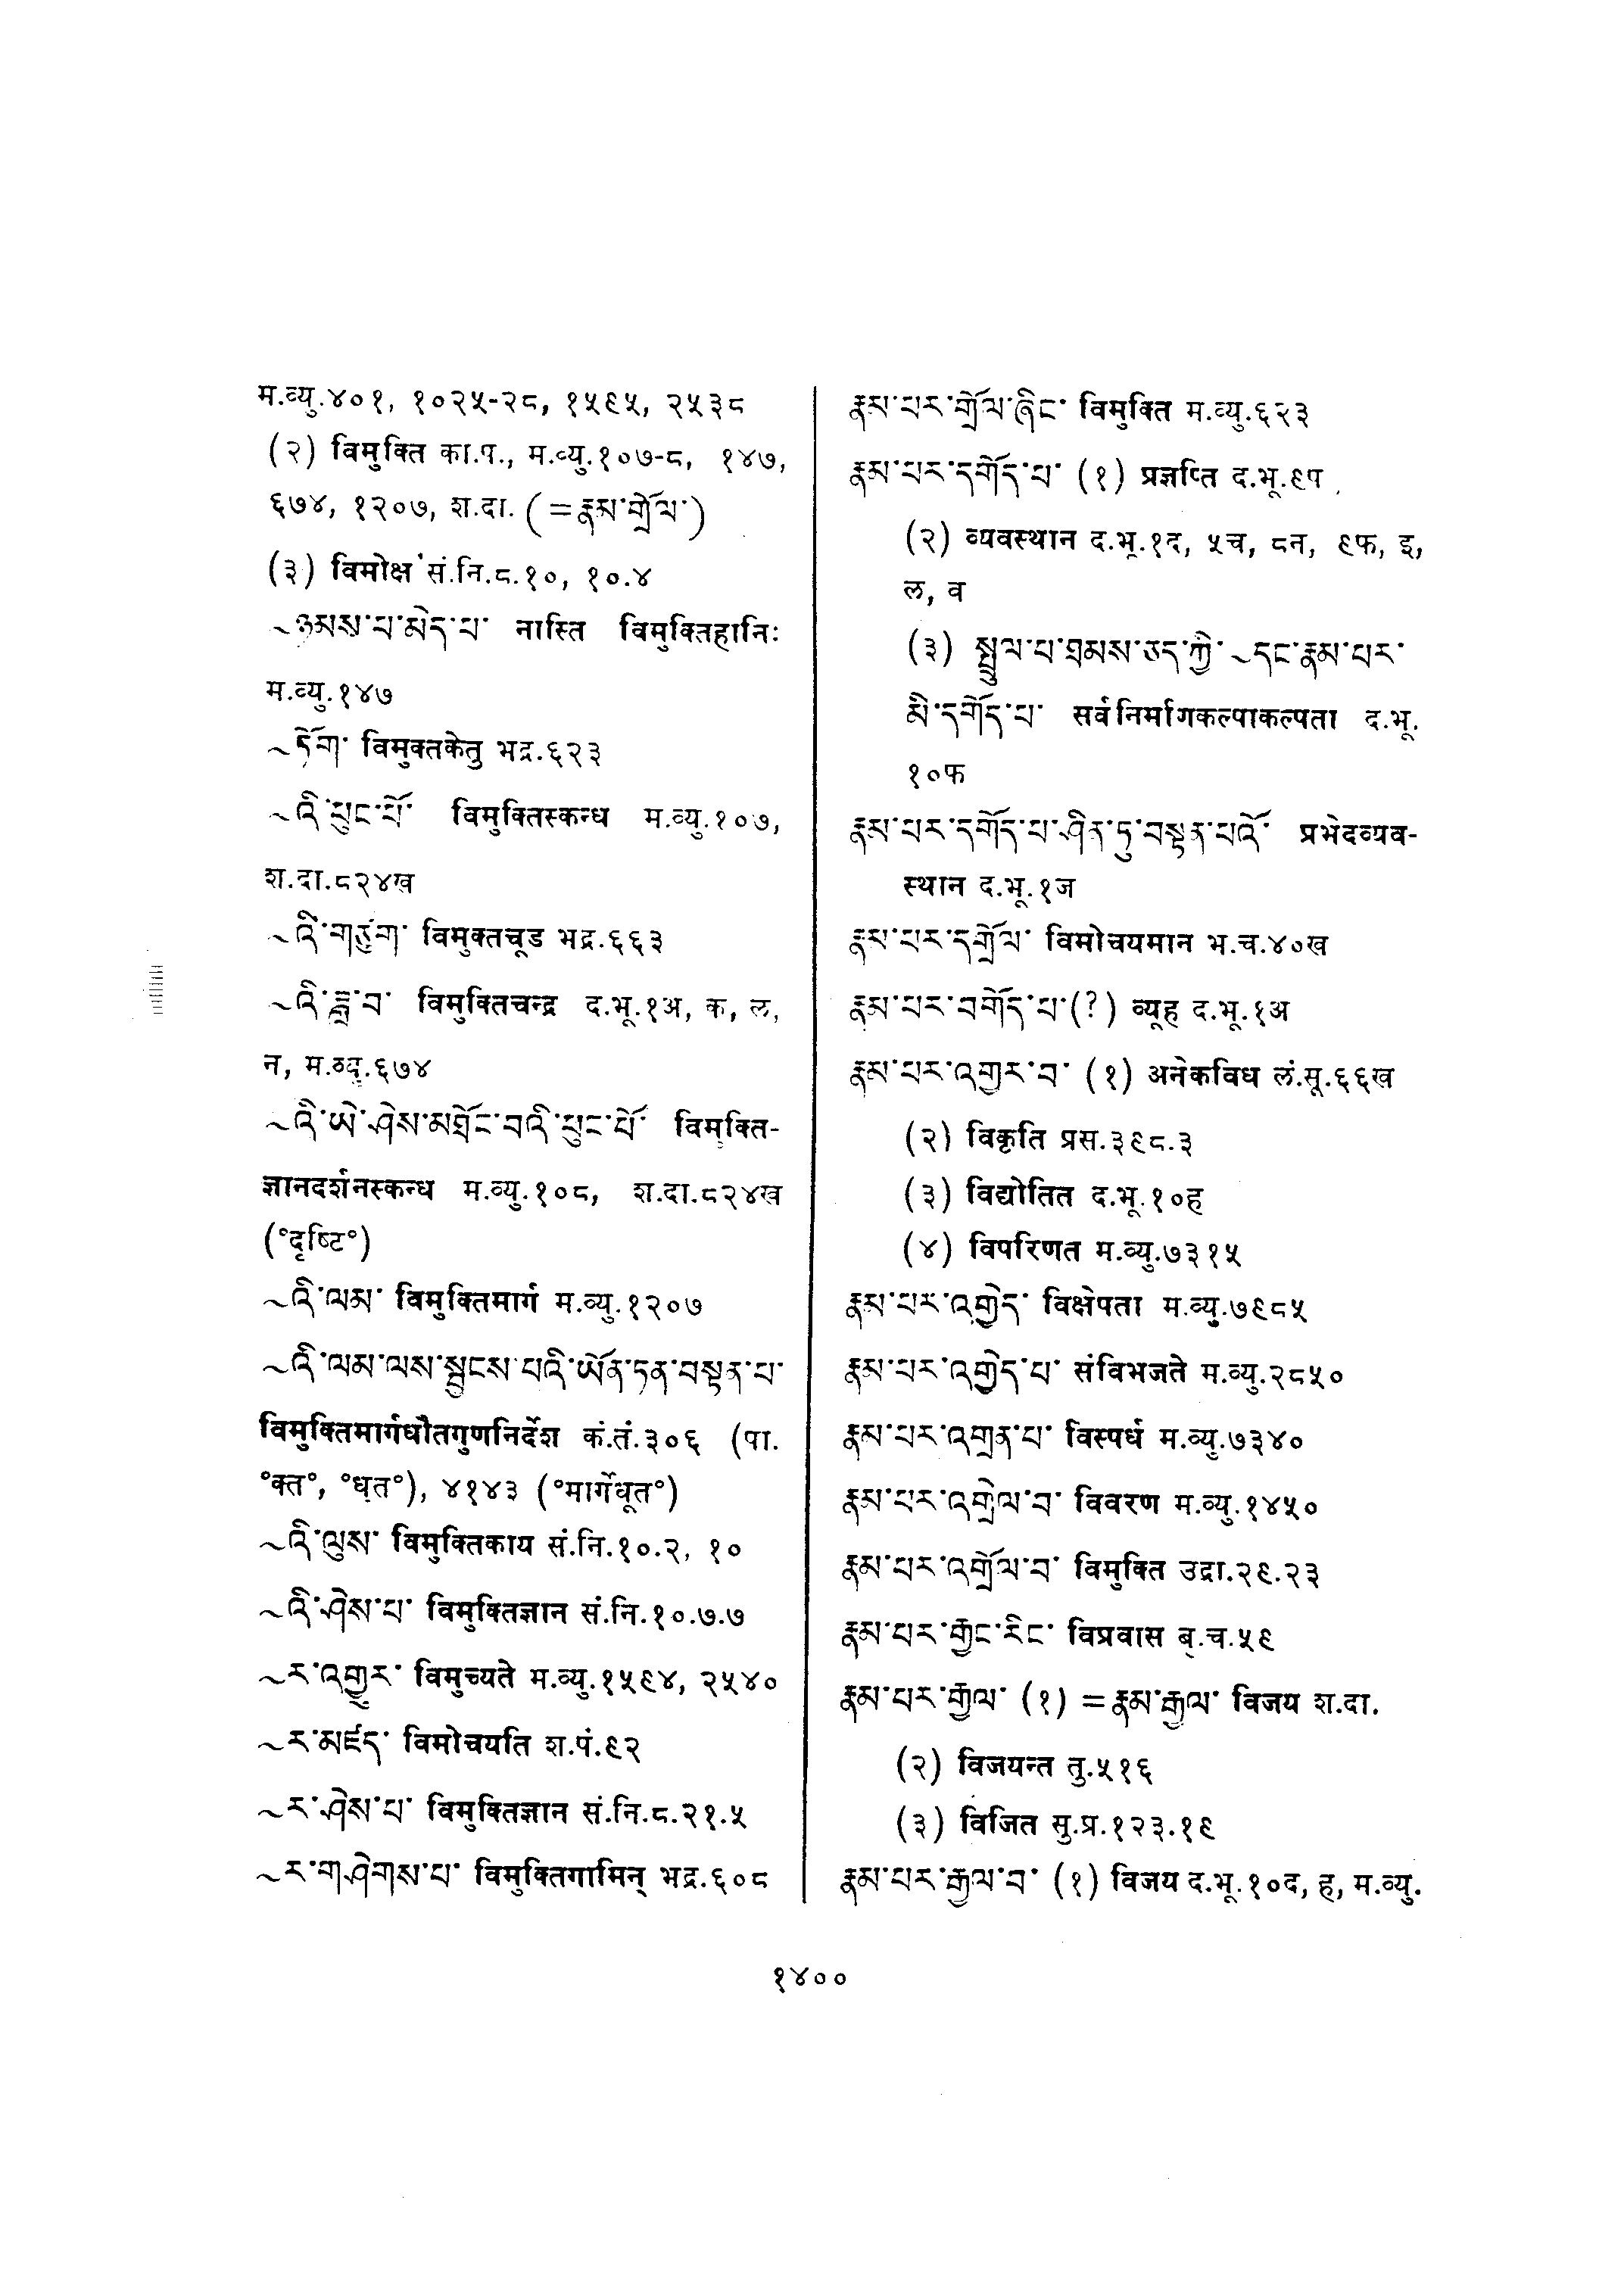 म.व्यु.४०१, १०२५-२८, १५९५, २५३८
(२) विमुक्ति का.प., म.व्यु.१०७-८, १४७,
६७४, १२०७, श.दा. (=རྣམ་གྲོལ་)
(३) विमोक्ष सं.नि.८.१०, १०.४
~ཉམས་པ་མེད་པ་ नास्ति विमुक्तिहानिः
म.व्यु.१४७
~ཏོག་ विमुक्तकेतु भद्र.६२३
~འི་ཕུང་པོ་ विमुक्तिस्कन्ध म.व्यु.१०७,
श.दा.८२४ख
~འི་གཙུག་ विमुक्तचूड भद्र.६६३
~འི་ཟླ་བ་ विमुक्तिचन्द्र द.भू.१अ, क, ल,
न, म.व्यु.६७४
~འི་ཡེ་ཤེས་མཐོང་བའི་ཕུང་པོ་ विमुक्ति-
ज्ञानदर्शनस्कन्ध म.व्यु.१०८, श.दा.८२४ख
(°दृष्टि°)
~འི་ལམ་ विमुक्तिमार्ग म.व्यु.१२०७
~འི་ལམ་ལས་སྦྱངས་པའི་ཡོན་ཏན་བསྟན་པ་
विमुक्तिमार्गधौतगुणनिर्देश कं.तं.३०६ (पा.
°क्त°, °धृत°), ४१४३ (°मार्गेधूत°)
~འི་ལུས་ विमुक्तिकाय सं.नि.१०.२, १०
~འི་ཤེས་པ་ विमुक्तिज्ञान सं.नि.१०.७.७
~ར་འགྱུར་ विमुच्यते म.व्यु.१५९४, २५४०
~ར་མཛད་ विमोचयति श.पं.९२
~ར་ཤེས་པ་ विमुक्तिज्ञान सं.नि.८.२१.५
~ར་གཤེགས་པ་ विमुक्तिगामिन् भद्र.६०८
རྣམ་པར་གྲོལ་ཞིང་ विमुक्ति म.व्यु.६२३
རྣམ་པར་དགོད་པ་ (१) प्रज्ञप्ति द.भू.९प
(२) व्यवस्थान द.भू.१द, ५च, ८न, ९फ, इ,
ल, व
(३) སྤྲུལ་པ་ཐམས་ཅད་ཀྱི་~དང་རྣམ་པར་
མི་དགོད་པ་ सर्वनिर्माणकल्पाकल्पता द.भू.
१०फ
རྣམ་པར་དགོད་པ་ཤིན་ཏུ་བསྟན་པའོ་ प्रभेदव्यव-
स्थान द.भू.१ज
རྣམ་པར་དགྲོལ་ विमोचयमान भ.च.४०ख
རྣམ་པར་བགོད་པ་(?) व्यूह द.भू.१अ
རྣམ་པར་འགྱར་བ་ (१) अनेकविध लं.सू.६६ख
(२) विकृति प्रस.३९८.३
(३) विद्योतित द.भू.१०ह
(४) विपरिणत म.व्यु.७३१५
རྣམ་པར་འགྱེད་ विक्षेपता म.व्यु.७९८५
རྣམ་པར་འགྱེད་པ་ संविभजते म.व्यु.२८५०
རྣམ་པར་འགྲན་པ་ विस्पर्ध म.व्यु.७३४०
རྣམ་པར་འགྲེལ་བ་ विवरण म.व्यु.१४५०
རྣམ་པར་འགྲོལ་བ་ विमुक्ति उद्रा.२९.२३
རྣམ་པར་རྒྱང་རིང་ विप्रवास बृ.च.५९
རྣམ་པར་རྒྱལ་ (१) =རྣམ་རྒྱལ་ विजय श.दा.
(२) विजयन्त तु.५१६
(३) विजित सु.प्र.१२३.१९
རྣམ་པར་རྒྱལ་བ་ (१) विजय द.भू.१०द, ह, म.व्यु.
१४००